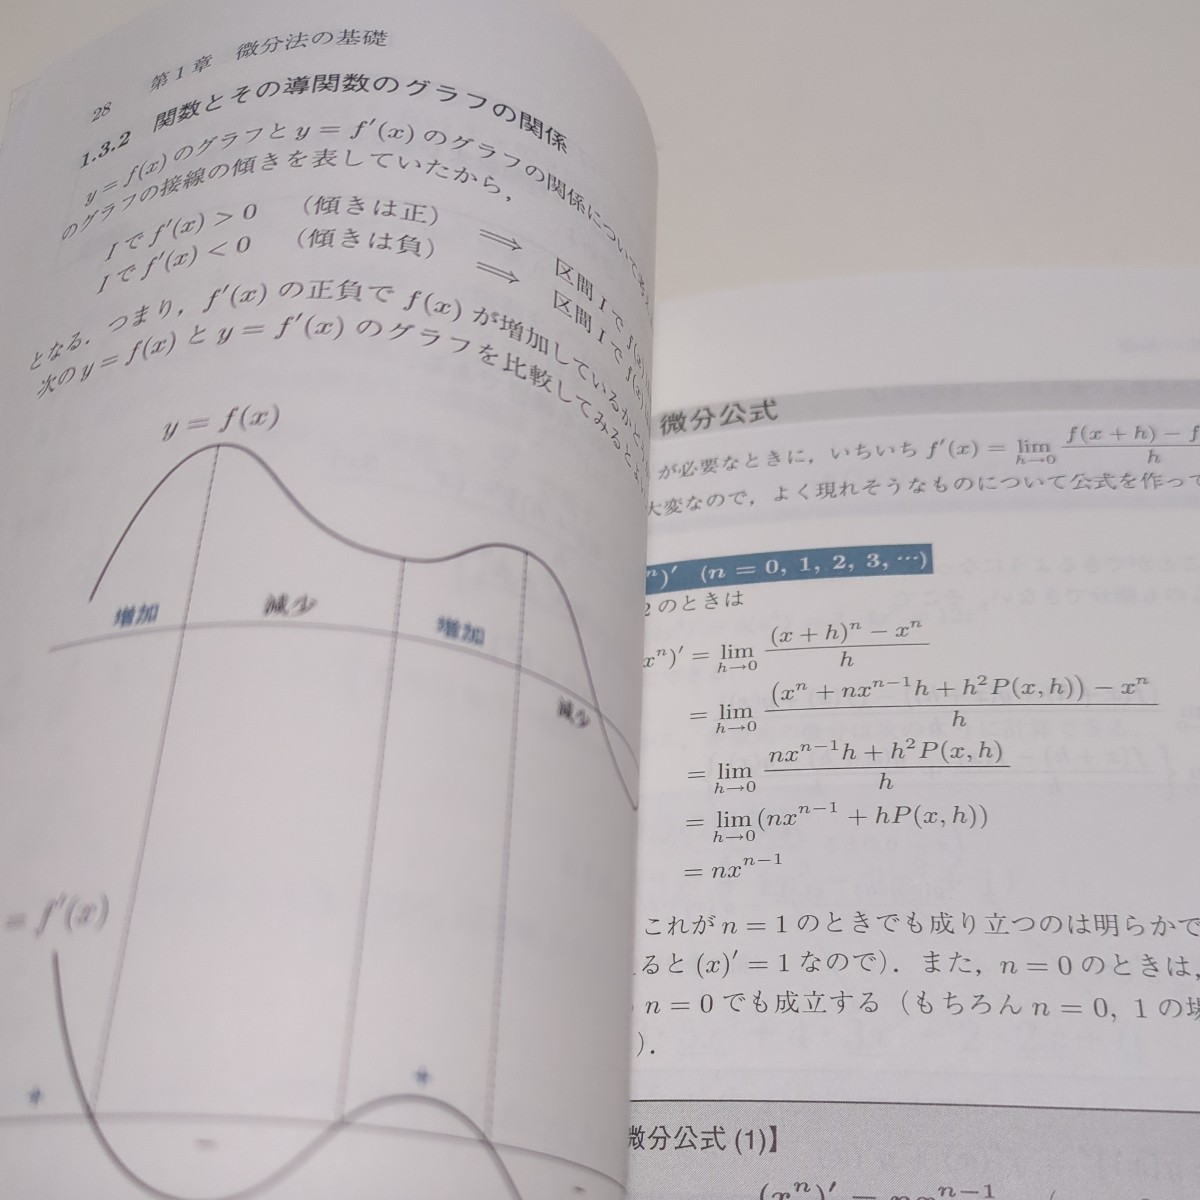 28 第1章 微分法の基礎
1.3.2 関数とその導関数のグラフの関係
y = f(x) のグラフと y = f'(x) のグラフの関係について
のグラフの接線の傾きを表していたから,
I で f'(x) > 0 (傾きは正) ⟹ 区間 I で f(x)
I で f'(x) < 0 (傾きは負) ⟹ 区間 I で f(x)
となる. つまり, f'(x) の正負で f(x) が増加しているか
次の y = f(x) と y = f'(x) のグラフを比較してみると
y = f(x)
増加 減少 増加 減少
= f'(x)
+ − + −
微分公式
が必要なときに, いちいち f'(x) = lim_{h→0} \frac{f(x + h) − f}{h}
大変なので, よく現れそうなものについて公式を作って
^n)' (n = 0, 1, 2, 3, ⋯)
2 のときは
x^n)' = lim_{h→0} \frac{(x + h)^n − x^n}{h}
= lim_{h→0} \frac{(x^n + nx^{n−1}h + h^2P(x, h)) − x^n}{h}
= lim_{h→0} \frac{nx^{n−1}h + h^2P(x, h)}{h}
= lim_{h→0} (nx^{n−1} + hP(x, h))
= nx^{n−1}
これが n = 1 のときでも成り立つのは明らかで
ると (x)' = 1 なので). また, n = 0 のときは,
n = 0 でも成立する (もちろん n = 0, 1 の場
).
微分公式 (1)】
(x^n)' = nx^{n−1}